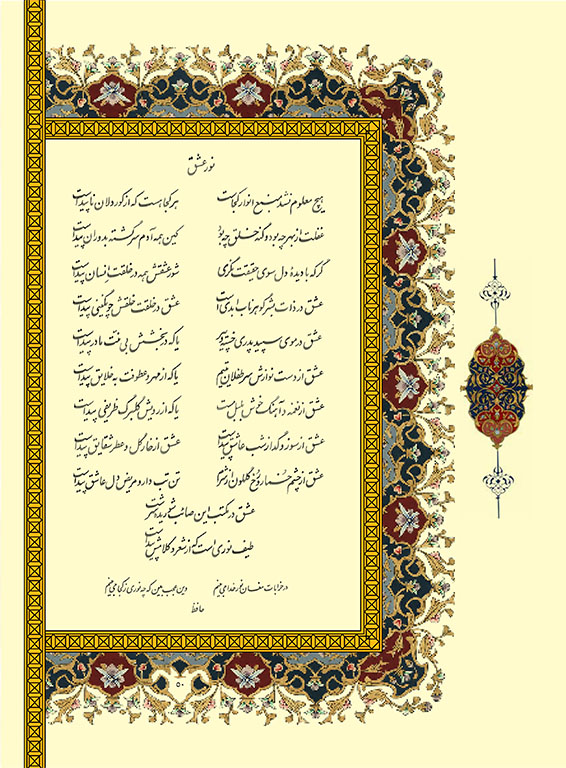 نور عشق
هیچ معلوم نشد منبع انوار کجاست هر کجا هست که از کوردلان ناپیداست
غفلت از بهر چه بود و گنه خلق چه بود کین همه آدم سرگشته بدوران پیداست
گر که با دیدهٔ دل سوی حقیقت نگری شور عشقش همه در خلقت انسان پیداست
عشق در ذات بشر گوهر ناب ابدی است عشق در خلقت خلقش پیداست
عشق در موی سپید پدری یا که در بخشش بی مادر پیداست
عشق از دست نوازش سر طفلان یتیم یا که از مهر و عطوفت به خلایق پیداست
عشق از نغمه و آهنگ خوش بلبل مست یا که از رویش گلبرگ ظریفی پیداست
عشق از سوز و گداز شب عاشق پیداست عشق از خار گل و عطر شقایق پیداست
عشق از چشم خمار و رخ گلگون تن تب دار و مریض دل عاشق پیداست
عشق در مکتب این صائب
طیف نوری است که از شعر و کلامش پیداست
در خرابات مغان نور خدا می‌بینم وین عجب بین که چه نوری ز کجا می‌بینم
حافظ
۵۰